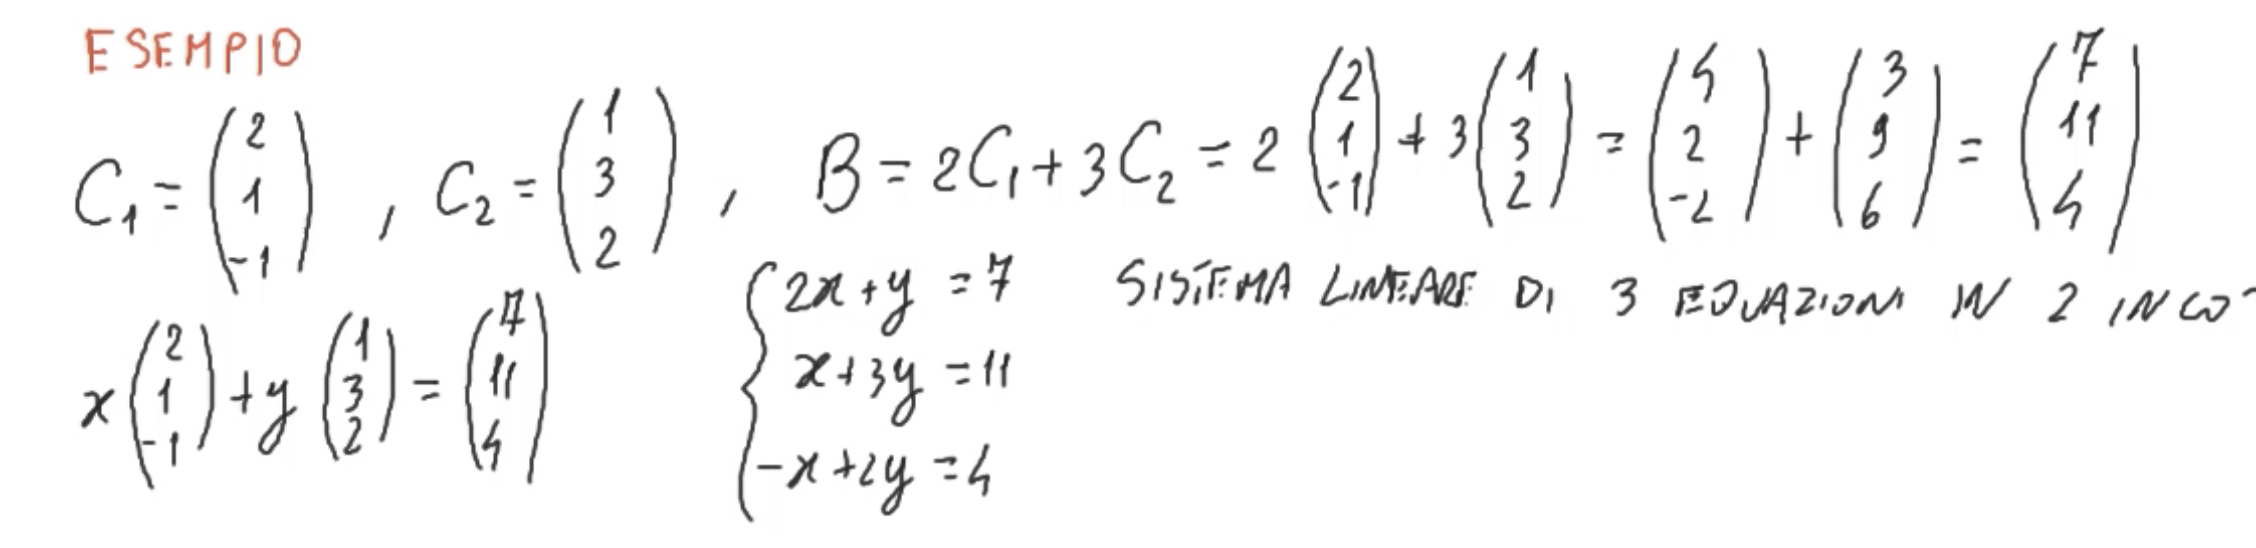 ESEMPIO
C₁ = (2 1 -1) , C₂ = (1 3 2) , B = 2C₁ + 3C₂ = 2 (2 1 -1) + 3 (1 3 2) = (4 2 -2) + (3 9 6) = (7 11 4)
x (2 1 -1) + y (1 3 2) = (7 11 4)
2x + y = 7 SISTEMA LINEARE DI 3 EQUAZIONI IN 2 INCO
x + 3y = 11
-x + 2y = 4